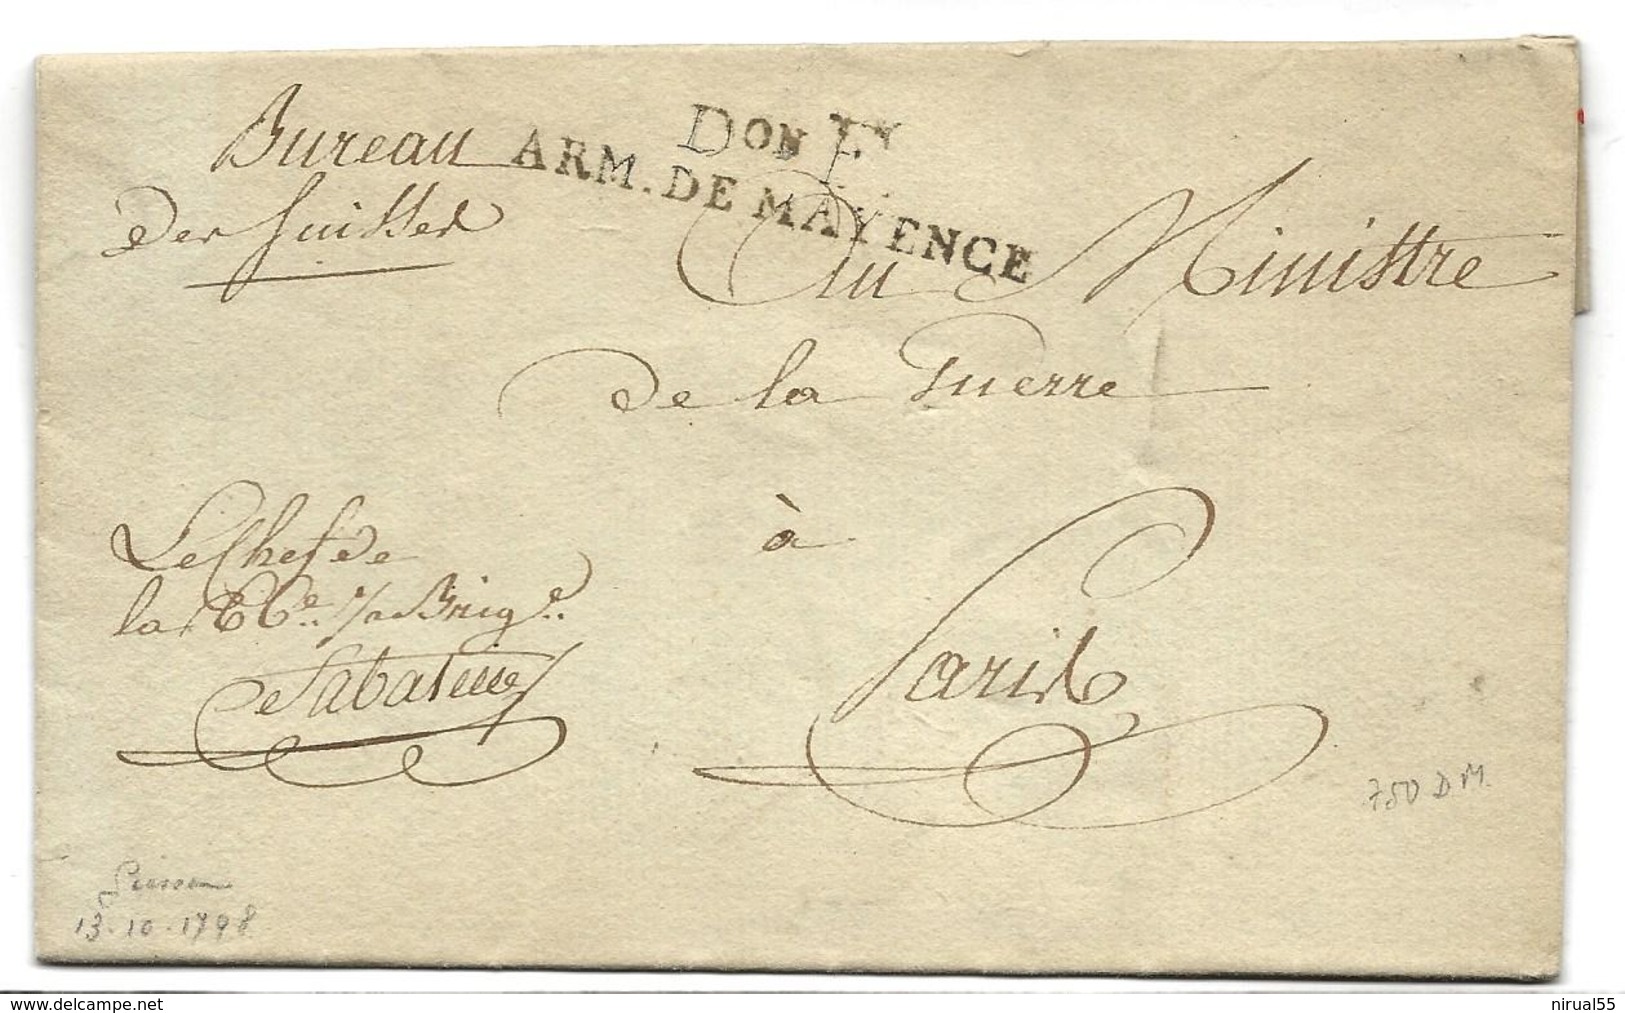 Bureau
Des Suisses
Don F
ARM. DE MAYENCE
Au Ministre
de la Guerre
à
Paris
Le Chef de
la Brig.e
Sabatier
750 DM.
13-10-1798
www.delcampe.net
nirual55